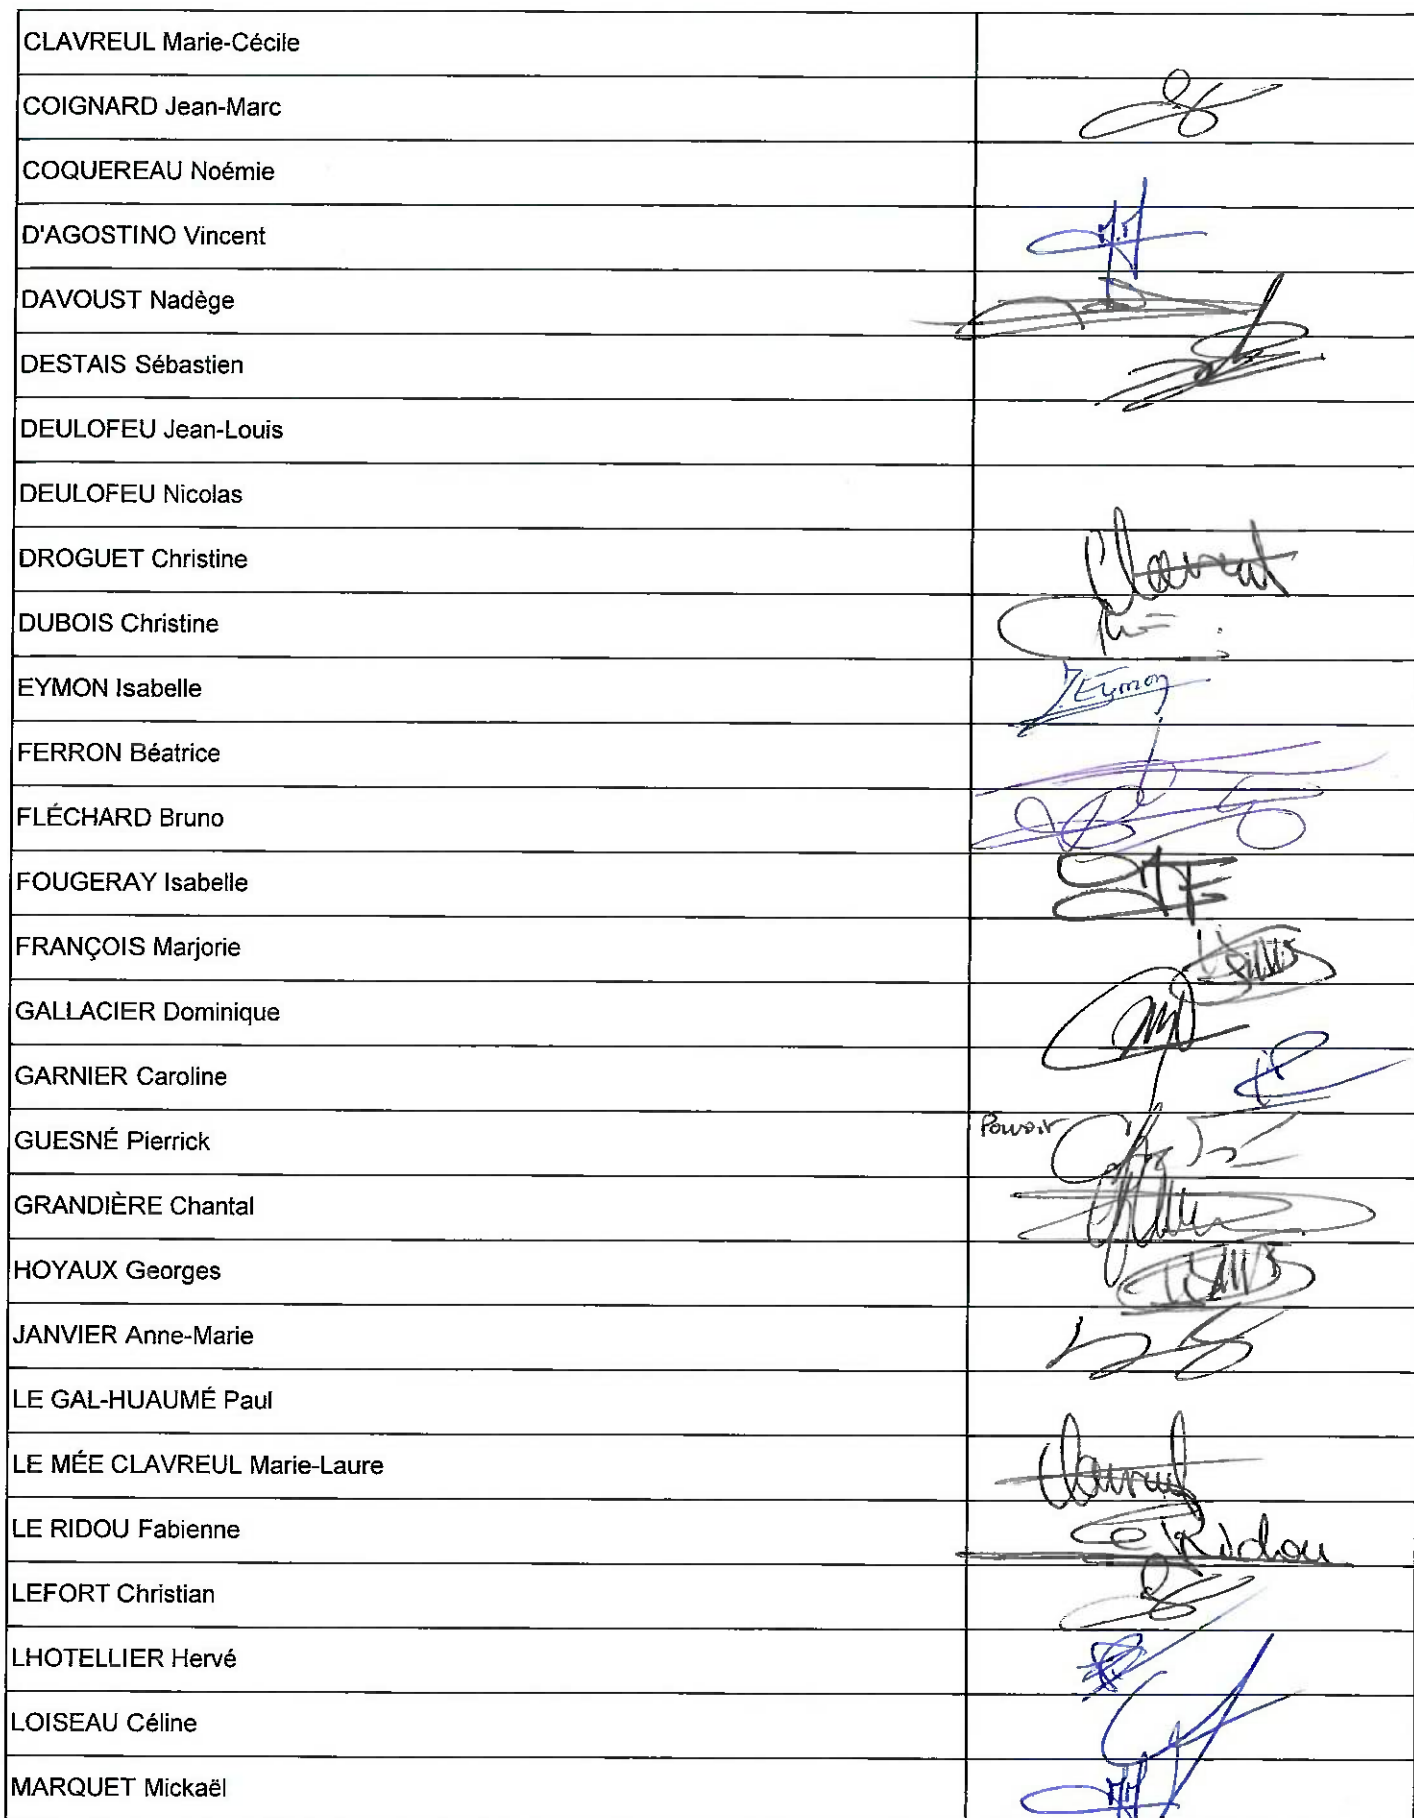 CLAVREUL Marie-Cécile
COIGNARD Jean-Marc
COQUEREAU Noémie
D'AGOSTINO Vincent
DAVOUST Nadège
DESTAIS Sébastien
DEULOFEU Jean-Louis
DEULOFEU Nicolas
DROGUET Christine
DUBOIS Christine
EYMON Isabelle
Eymon
FERRON Béatrice
FLÉCHARD Bruno
FOUGERAY Isabelle
FRANÇOIS Marjorie
GALLACIER Dominique
GARNIER Caroline
GUESNÉ Pierrick
Pouvoir
GRANDIÈRE Chantal
HOYAUX Georges
JANVIER Anne-Marie
LE GAL-HUAUMÉ Paul
LE MÉE CLAVREUL Marie-Laure
LE RIDOU Fabienne
Ridou
LEFORT Christian
LHOTELLIER Hervé
LOISEAU Céline
MARQUET Mickaël